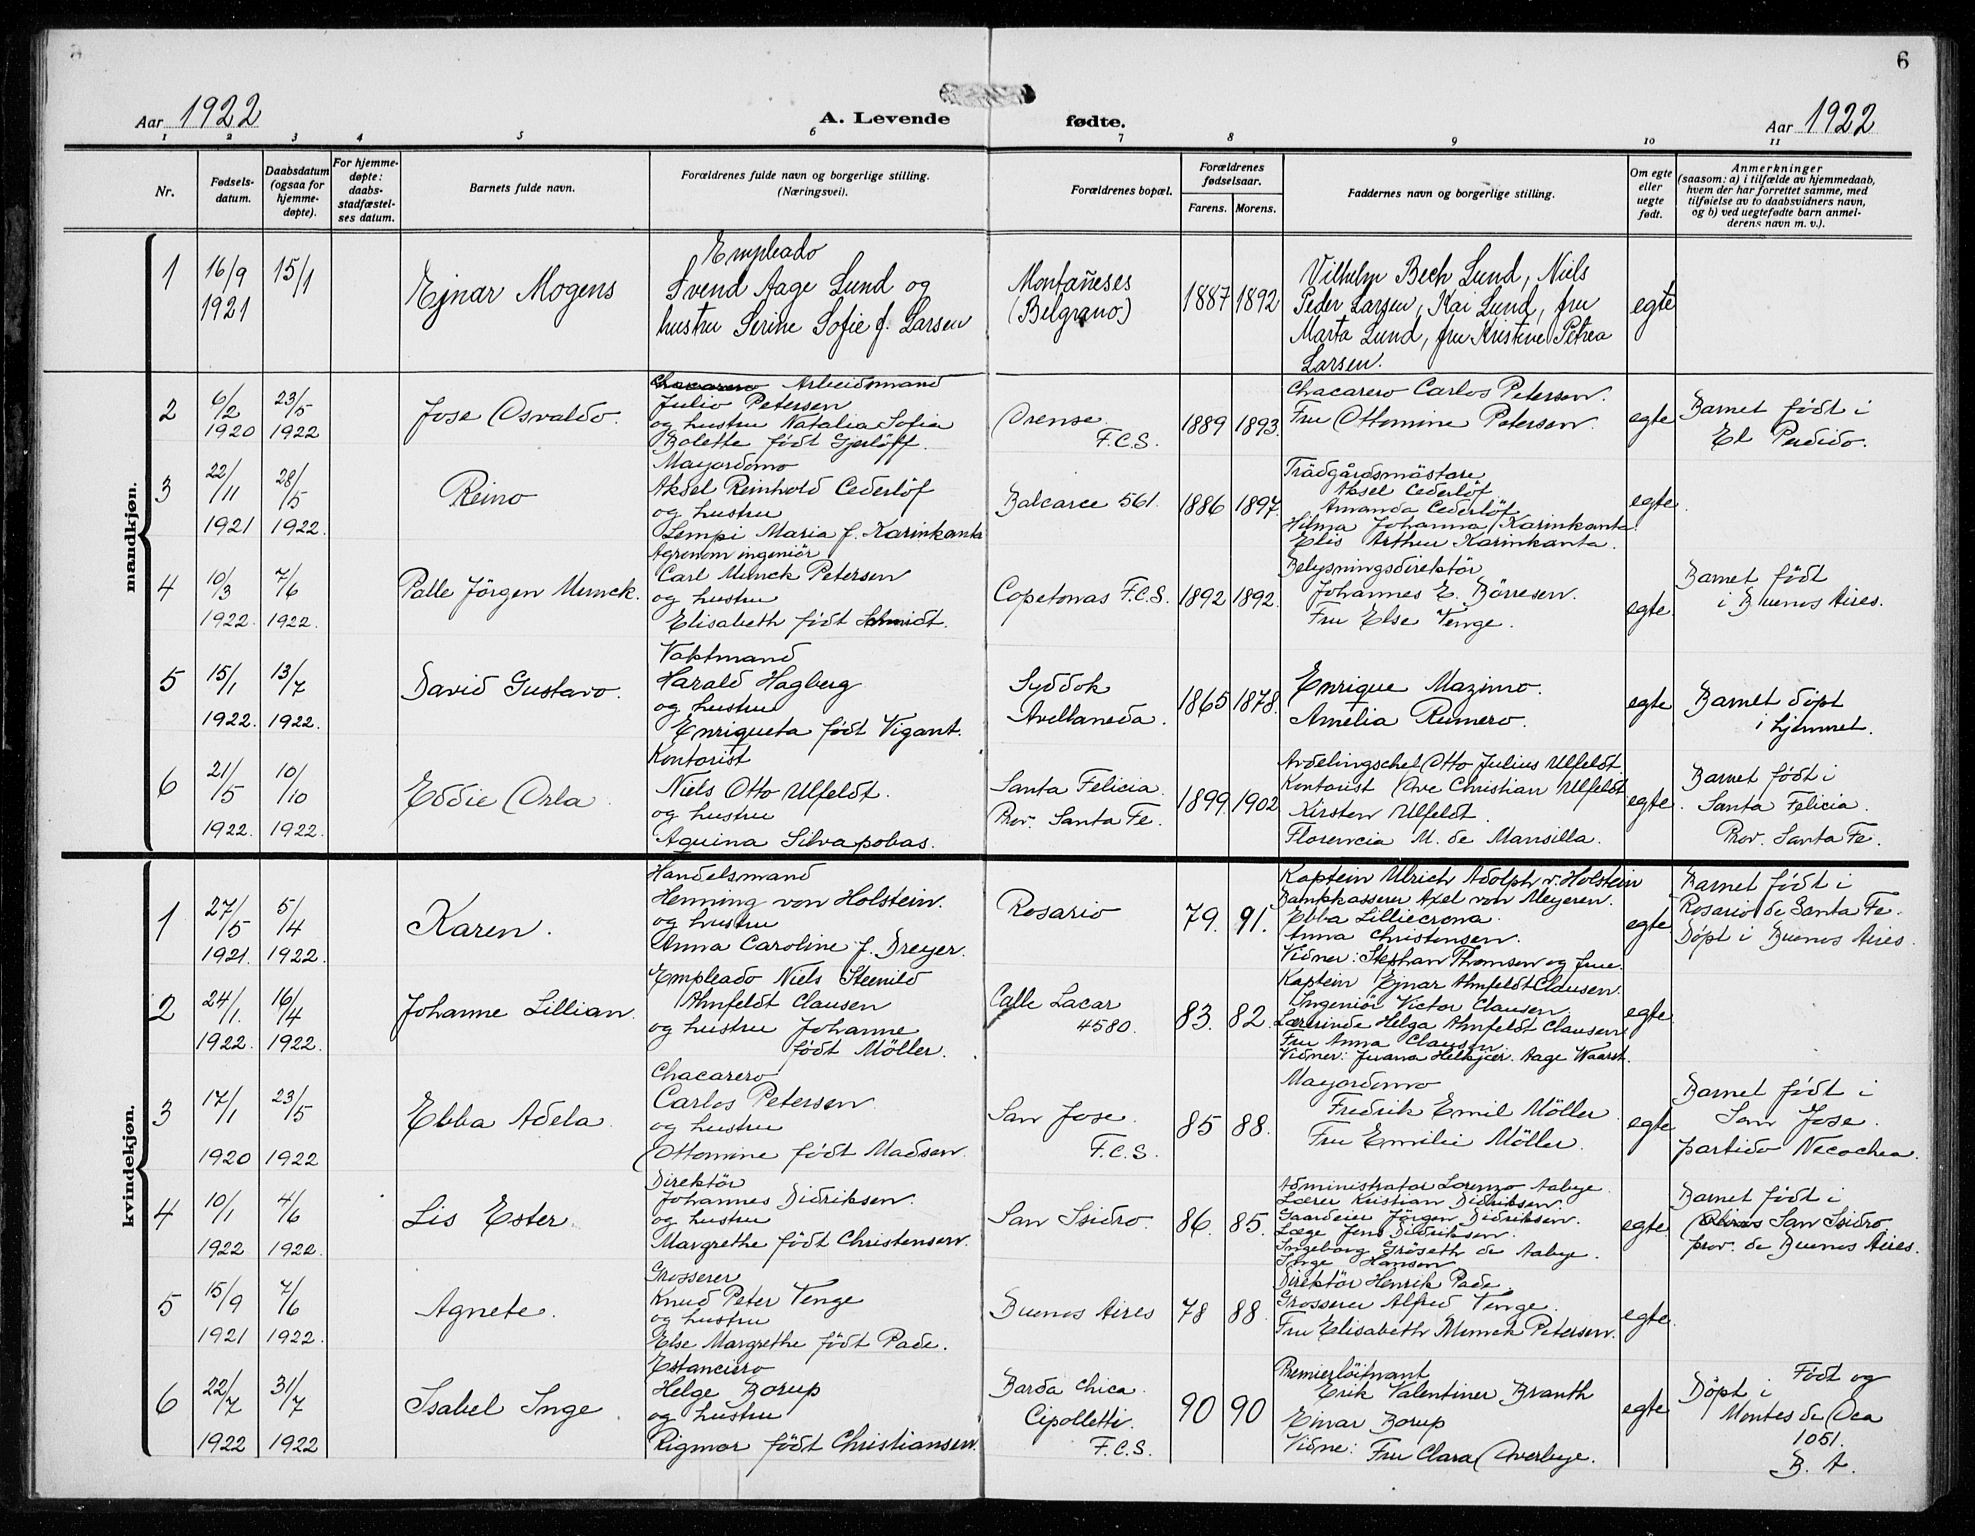 6
Aar 1922
A. Levende fødte.
Aar 1922
1 2 3 4 5 6 7 8 9 10 11
Nr.
Fødsels-
datum.
Daabsdatum
(ogsaa for
hjemme-
døpte).
For hjemme-
døpte:
daabs-
stadfæstel-
ses datum.
Barnets fulde navn.
Forældrenes fulde navn og borgerlige stilling.
(Næringsvei).
Forældrenes bopæl.
Forældrenes
fødselsaar.
Farens. Morens.
Faddernes navn og borgerlige stilling.
Om egte
eller
uegte
født.
Anmerkninger
(saasom: a) i tilfælde av hjemmedaab,
hvem der har forrettet samme, med
tilføielse av to daabsvidners navn,
og b) ved uegtefødte barn anmel-
derens navn m. v.).
mandkjøn.
1
16/9
1921
15/1
Ejnar Mogens
Empleado
Svend Aage Lund og
hustru Serine Sofie f. Larsen
Montañeses
(Belgrano)
1887 1892
Vilhelm Bech Lund, Niels
Peder Larsen, Kai Lund, fru
Marta Lund, fru Kristine Petrea
Larsen.
egte
2
6/2
1920
23/5
1922
Jose Osvaldo.
Chacarero Arbeidsmand
Julio Petersen
og hustru Natalia Sofia
Bolette født Gjerløff.
Orense.
F.C.S.
1889 1893.
Chacarero Carlos Petersen.
Fru Ottomine Petersen.
egte
Barnet født i
El Perdido.
3
22/11
1921
28/5
1922.
Reino
Mayordomo
Aksel Reinhold Cederlöf
og hustru
Lempi Maria f. Karinkanta
Balcarce 561.
1886 1897.
Trädgårdsmästare
Aksel Cederlöf
Amanda Cederlöf
Hilma Johanna Karinkanta.
Elis Arthur Karinkanta.
egte.
4
10/3
1922.
7/6
1922.
Palle Jörgen Munck.
Agronom ingeniör
Carl Munck Petersen
og hustru
Elisabeth født Schmidt.
Copetonas F.C.S.
1892 1892.
Belysningsdirektör
Johannes E. Börresen.
Fru Else Tenge.
egte
Barnet født
i Buenos Aires.
5
15/1
1922.
13/7
1922.
David Gustavo.
Vaktmand
Harald Hagberg
og hustru
Enriqueta født Vigant.
Syddok
Avellaneda.
1865 1878.
Enrique Mazimo.
Amelia Rumero.
egte
Barnet döpt
i hjemmet.
6
21/5
1922.
10/10
1922.
Eddie Orla
Kontorist
Niels Otto Ulfeldt.
og hustru
Aquina Silvapobas.
Santa Felicia.
Prov. Santa Fe.
1899. 1902
Avdelingschef Otto Julius Ulfeldt
Kontorist Ove Christian Ulfeldt
Kirsten Ulfeldt.
Florencia M. de Mansilla.
egte.
Barnet født i
Santa Felicia.
Prov. Santa Fe.
kvindekjøn.
1
27/5
1921.
5/4
1922.
Karen.
Handelsmand
Henning von Holstein.
og hustru
Anna Caroline f. Dreyer.
Rosario
79. 91.
Kaptein Ulrich Adolph v. Holstein
Bankkasserer Axel von Meyeren.
Ebba Lilliecrona.
Anna Christensen.
Vidner: Stephan Thomsen og frue.
egte
Barnet født i
Rosario de Santa Fe.
Döpt i Buenos Aires.
2
24/1.
1922.
16/4
1922.
Johanne Lillian.
Empleado Niels Steenild
Ahnfeldt Clausen
og hustru Johanne
født Möller.
Calle Lacar
4580.
83. 82.
Kaptein Ejnar Ahnfeldt Clausen.
Ingeniör Victor Clausen.
Lærerinde Helga Ahnfeldt Clausen
Fru Anna Clausen.
Vidner: Juana Helkjær. Aage Waarst.
egte
3
17/1
1920
23/5
1922
Ebba Adela.
Chacarero
Carlos Petersen
og hustru
Ottomine født Madsen.
San Jose.
F.C.S.
85 88.
Mayordomo
Fredrik Emil Möller.
Fru Emilie Möller.
egte
Barnet født i
San Jose.
partido Necochea.
4
10/1
1922
4/6
1922.
Lis Ester.
Direktör
Johannes Didriksen.
og hustru
Margrethe født Christensen.
San Isidro.
86. 85.
Administrator Lorenzo Aabye.
Lærer Kristian Didriksen.
Gaardeier Jörgen Didriksen.
Læge Jens Didriksen.
Ingeborg Gröseth de Aabye.
Inge Hansen
egte
Barnet født i
San Isidro
prov. de Buenos Aires.
5
15/9
1921
7/6
1922.
Agnete.
Grosserer
Knud Peter Tenge
og hustru
Else Margrethe født Pade.
Buenos Aires
78 88.
Direktör Henrik Pade.
Grosserer Alfred Tenge.
Fru Elisabeth Munck Petersen.
egte
6
22/7
1922
31/7
1922
Isabel Inge
Estanciero
Helge Borup
og hustru
Rigmor født Christiansen.
Barda Chica.
Cipolletti.
F.C.S.
90 90
Premierlöitnant
Erik Valentiner Branth
Einar Borup
Vidne: Fru Clara Overbye.
egte
Født og
Döpt i
Montes de Oca
1051.
B. A.